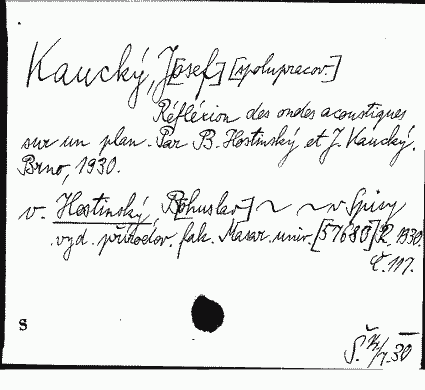 Kaucký, J[osef] [spolupracov.]
Réfléxion des ondes acoustiques
sur un plan. Par B. Hostinský et J. Kaucký.
Brno, 1930.
v. Hostinský, B[ohuslav] ~ ~ v Spisy
vyd. přírodov. fak. Masar. univ. [57680] R. 1930.
Č. 117.
s